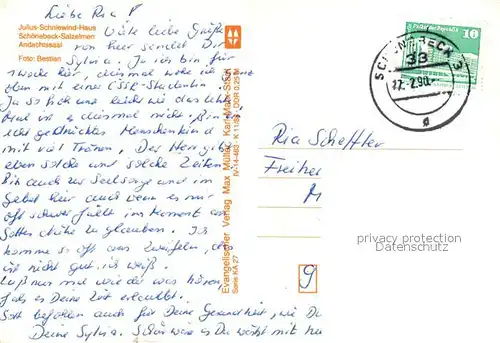 Julius-Schniewind-Haus
Schönebeck-Salzelmen
Andachtssaal
Foto: Bestian
Liebe Ria!
Viele liebe Grüße
von hier sendet Dir
Sylvia. Ja ich bin für
1 Woche hier, diesmal wohne ich
oben mit einer CSSR-Studentin.
Ja so sich und leicht wie das letzte
Mal ist es diesmal nicht. Bin ein
recht gedrücktes Menschenkind
mit viel Tränen. Der Herr gibt
eben solche und solche Zeiten.
Bin auch zur Seelsorge und im
Gebet hier auch wenn es mir
oft schwer fällt im Moment an
Gottes Nähe zu glauben. Ich
komme so oft am Zweifeln, das
ist nicht gut, ich weiß.
Laß nur mal wieder was hören,
falls es Deine Zeit erlaubt.
Gott befohlen auch für Deine Gesundheit, wie Du
Deine Sylvia. Schön wäre es Du wärst mit hier
Evangelischer Verlag Max Müller, Karl-Marx-Stadt
Serie KA 27
SCHÖNEBECK 3
33
17.-2.90.-
d
10
Ria Scheffler
Freiher
9
privacy protection
Datenschutz